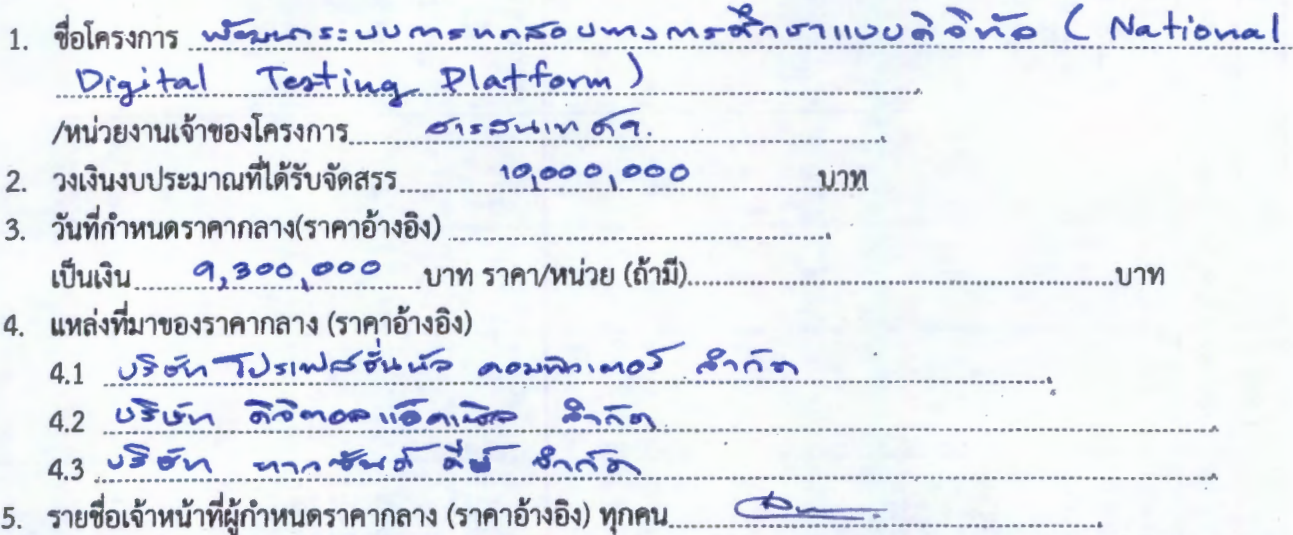 1. ชื่อโครงการ พัฒนาระบบการทดสอบทางการศึกษาแบบดิจิทัล ( National
Digital Testing Platform )
/หน่วยงานเจ้าของโครงการ สารสนเทศฯ.
2. วงเงินงบประมาณที่ได้รับจัดสรร 10,000,000 บาท
3. วันที่กำหนดราคากลาง(ราคาอ้างอิง)
เป็นเงิน 9,300,000 บาท ราคา/หน่วย (ถ้ามี) บาท
4. แหล่งที่มาของราคากลาง (ราคาอ้างอิง)
4.1 บริษัท โปรเฟสชั่นนัล คอมพิวเตอร์ จำกัด
4.2 บริษัท ดิจิตอล จำกัด
4.3 บริษัท จำกัด
5. รายชื่อเจ้าหน้าที่ผู้กำหนดราคากลาง (ราคาอ้างอิง) ทุกคน